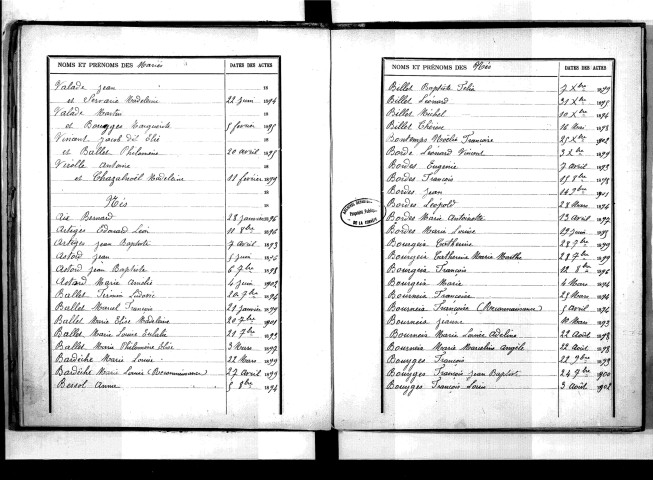 NOMS ET PRÉNOMS DES Mariés DATES DES ACTES
Valade Jean 18
et Servarie Madeleine 22 juin 1894
Valade Martin 18
et Bouygges Marguerite 5 février 1895
Vincent Jacob dit Elie 18
et Ballet Philomène 20 avril 1895
Virolle Antoine 18
et Chazalnoël Madeleine 11 février 1899
18
Nés 18
Aie Bernard 28 janvier 1896
Artiges Edouard Léon 11 8bre 1896
Artiges Jean Baptiste 7 avril 1893
Astord Jean 5 juin
Astord Jean Baptiste 6 7bre 1898
Astord Marie Amélie 4 juin 1902
Ballet Firmin Ludovic 20 7bre 1896
Ballet Marcel François 21 janvier 1899
Ballet Marie Elise Madeleine 20 7bre 1901
Ballet Marie Louise Eulalie 21 7bre 1893
Ballet Marie Philomène Elise 3 Mars 1897
Bardèche Marie Louise 22 Mars 1899
Bardèche Marie Louise (Reconnaissance) 27 Avril 1899
Bessol Anna 5 8bre 1894
NOMS ET PRÉNOMS DES Nés DATES DES ACTES
Billet Baptiste Félix 7 Xbre 1899
Billet Léonard 31 Xbre 1895
Billet Michel 10 Xbre 1894
Billet Thérèse 16 Mai 1898
Bontemps Noélie Francine 25 Xbre 1902
Borde Léonard Vincent 3 Xbre 1899
Bordes Eugénie 7 Avril 1893
Bordes François
Bordes Jean 1901
Bordes Léopold 28 Mars 1896
Bordes Marie Antoinette 13 Avril 1897
Bordes Marie Louise 19 juin 1895
Bourgeix Catherine 28 7bre 1899
Bourgeix Catherine Marie Marthe 28 7bre 1899
Bourgeix François 12 8bre 1896
Bourgeix Marie 4 Mars 1894
Bourneix Francoise 29 Mars 1894
Bourneix Françoise (Reconnaissance) 5 Avril 1896
Bourneix Jeanne 10 Mars 1893
Bourneix Marie Louise Adeline 22 Août 1898
Bourneix Marie Marceline Angèle 22 Août 1898
Bouygges François 22 9bre 1899
Bouygges François Jean Baptist 24 7bre 1900
Bouygges François Louis 3 Août 1902